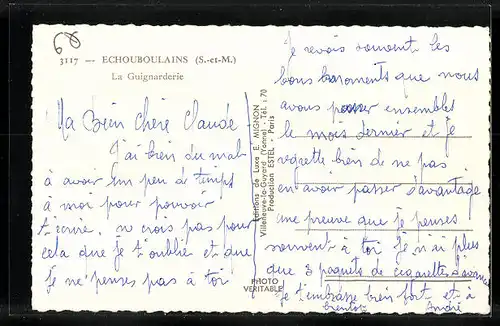 68
3117 — ECHOUBOULAINS (S.-et-M.)
La Guignarderie
Ma Bien Chère Claude
J'ai bien du mal
à avoir un peu à temps
à moi pour pouvoir
t'ecrire, ne crois pas pour
cela que je t'oublie et que
je ne penses pas à toi
Editions de Luxe E. MIGNON
Villeneuve-la-Guyard (Yonne) - Tél. : 70
Production ESTEL - Paris
PHOTO
VERITABLE
Je revois souvent les
bons moments que nous
avons passer ensembles
le mois dernier et je
regrette bien de ne pas
en avoir passer d'avantage
une preuve que je penses
souvent à toi je n'ai plus
que 3 paquets de cigarettes
Je t'embrasse bien fort et à
bientot André